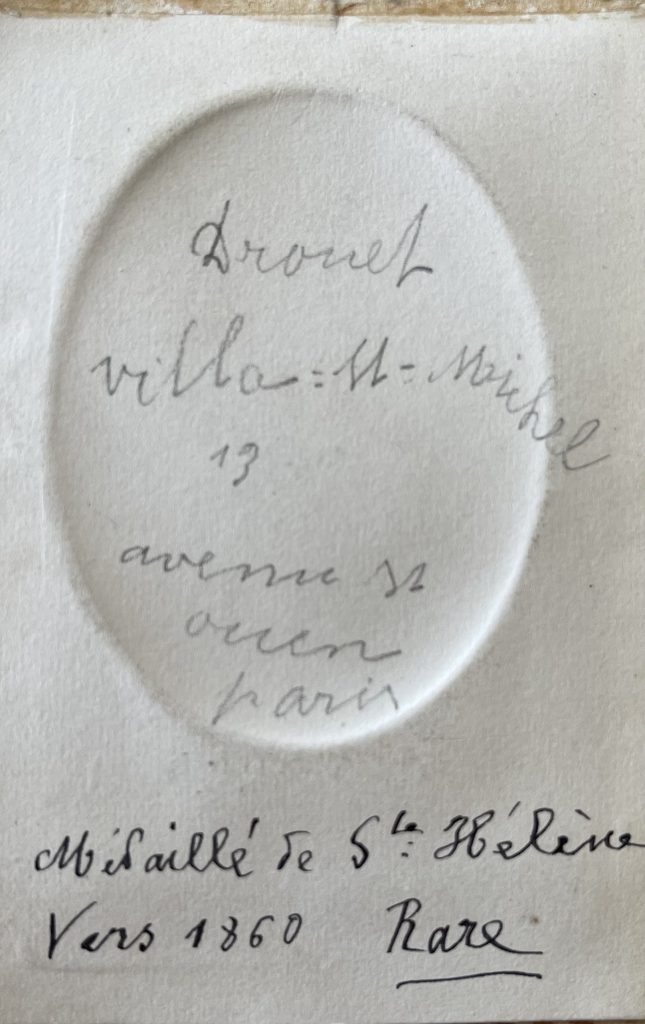 Drouet
villa=St-Michel
13
avenue St
ouen
paris
Médaillé de Ste: Hélène
Vers 1860 Rare